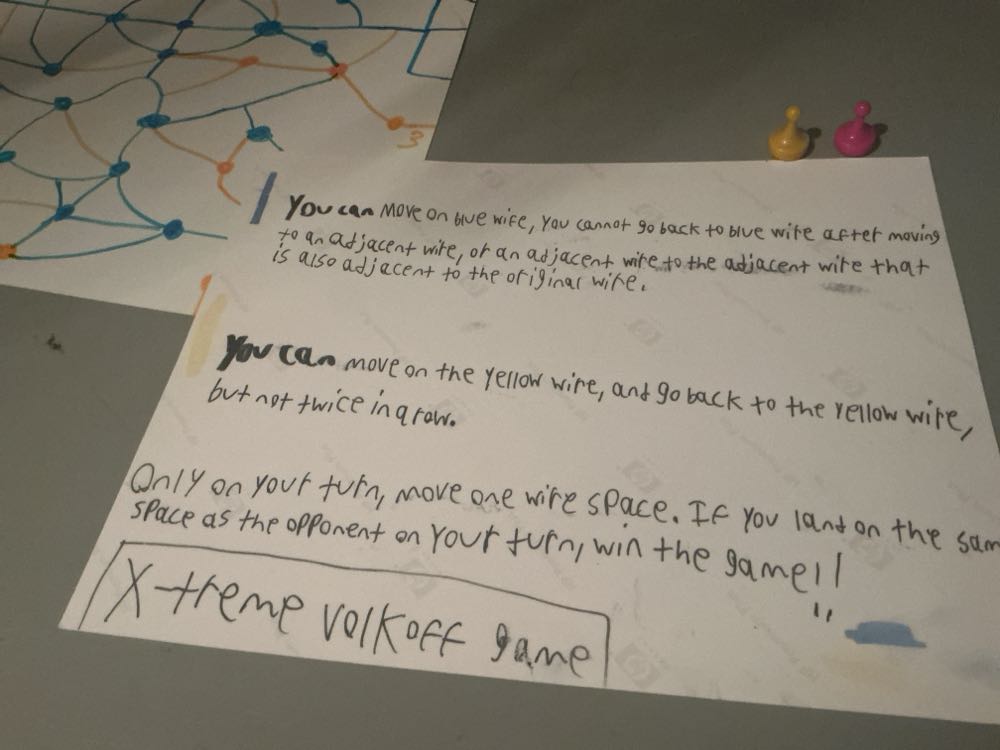 3
You can move on blue wire, you cannot go back to blue wire after moving
to an adjacent wire, or an adjacent wire to the adjacent wire that
is also adjacent to the original wire.
You can move on the yellow wire, and go back to the yellow wire,
but not twice in a row.
Only on your turn, move one wire space. If you land on the sam
space as the opponent on your turn, win the game!!
X-treme volkoff game